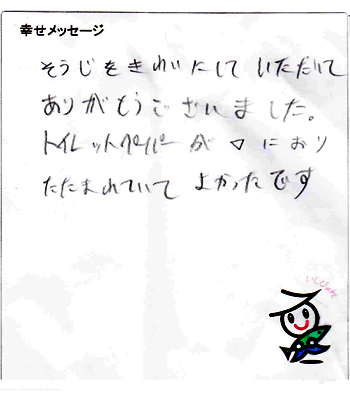 幸せメッセージ
そうじをきれいにして いただいて
ありがとうございました。
トイレットペーパーが▽におり
たたまれていて よかったです